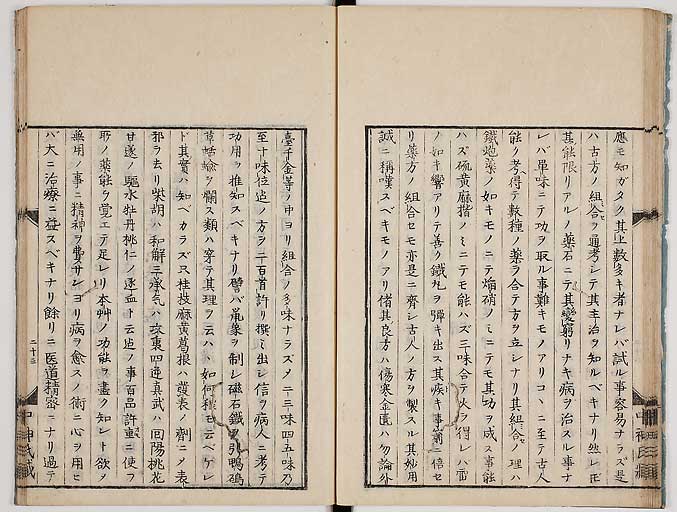 應モ知ガタク其上數多キ者ナレバ試ル事容易ナラズ是
ハ古方ノ組合ヲ通考シテ其主治ヲ知ルベキナリ然レ𪜈
其能限リアルノ藥石ニテ其變窮リナキ病ヲ治スル事ナ
レバ單味ニテ功ヲ取ル事難キモノアリコヽニ至テ古人
能ク考得テ數種ノ藥ヲ合テ方ヲ立シナリ其組合ノ理ハ
鐵炮藥ノ如キモノニテ焔硝ノミニテモ其功ヲ成ス事能
ハズ硫黄麻楷ノミニテモ能ハズ三味合テ火ヲ得レバ雷
ノ如キ響アリテ善ク鐵丸ヲ彈キ出ス其疾キ事箭ニ倍セ
リ藥方ノ組合セモ亦是ニ齊シ古人ノ方ヲ製スル其妙用
誠ニ稱嘆スベキモノアリ偖其良方ハ傷寒金匱ハ勿論外
臺千金等ノ中ヨリ組合ノ多味ナラズノ二三味四五味乃
至十味位迠ノ方ヲ二百首許リ撰ミ出シ信ヲ病人ニ考テ
功用ヲ推知スベキナリ譬バ
ヲ制シ磁石鐵ヲ引鴨磆
ヲ爛ス類ハ穿テ其理ヲ云ハヾ如何樣モ云ベケレ
ド其實ハ知ベカラズ只桂枝麻黄葛根ハ發表ノ劑ニノ表
邪ヲ去リ柴胡ハ和解三承氣ハ攻裏四逆真武ハ回陽桃花
甘遂ノ驅水牡丹桃仁ノ逐血ト云迠ノ事百品許リニ便ヲ
取ノ藥能ヲ覚エテ足レリ本艸ノ功能ヲ盡ク知ント欲ヲ
無用ノ事ニ精神ヲ費サンヨリ病ヲ愈スノ術ニ心ヲ用ヒ
バ大ニ治療ニ益スベキナリ餘リニ医道精密ニナリ過テ
二十三
中神氏藏